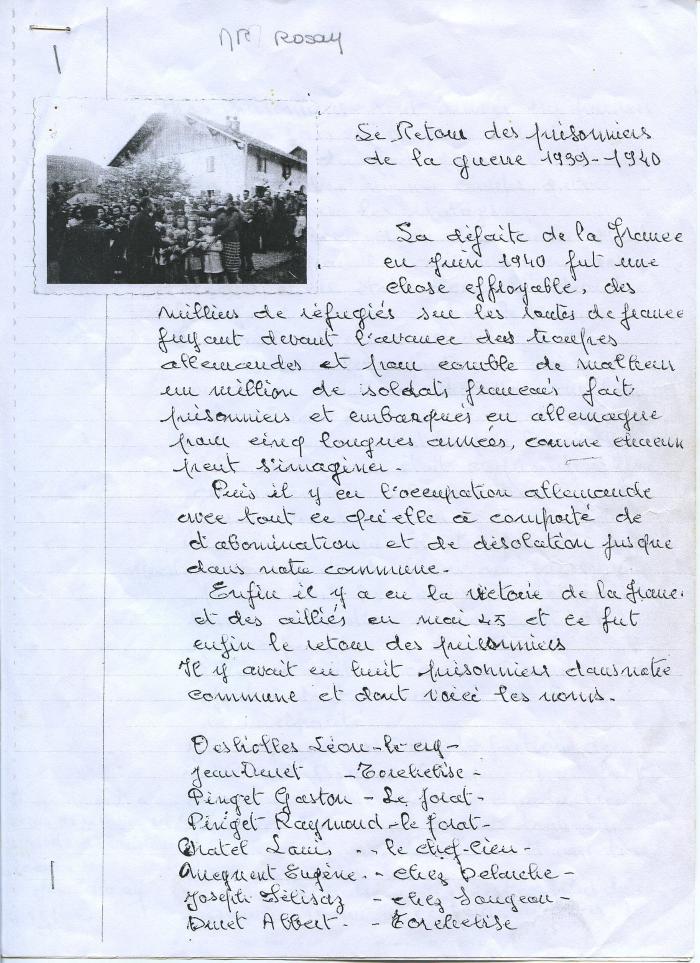 Mr Rosay
Le Retour des prisonniers
de la guerre 1939-1940
La défaite de la France
en Juin 1940 fut une
chose effroyable, des
milliers de réfugiés sur les routes de france
fuyant devant l'avance des troupes
allemandes et pour comble de malheur
un million de soldats francais fait
prisonniers et embarqués en allemagne
pour cinq longues années, comme chacun
peut s'imaginer.
Puis il y eu l'occupation allemande
avec tout ce qu'elle à comporté de
d'abomination et de désolation jusque
dans notre commune.
Enfin il y a eu la victoire de la France
et des alliés en mai 45 et ce fut
enfin le retour des prisonniers
Il y avait eu huit prisonniers dans notre
commune et dont voici les noms.
Desbiolles Léon - le cry -
Jean Duret - Torchebise -
Pinget Gaston - Le forat -
Pinget Raymond - le forat -
Chatel Louis - le chef-lieu -
Eugène - chez Delouche -
Joseph Félisaz - chez Songeon -
Duret Albert - Torchebise